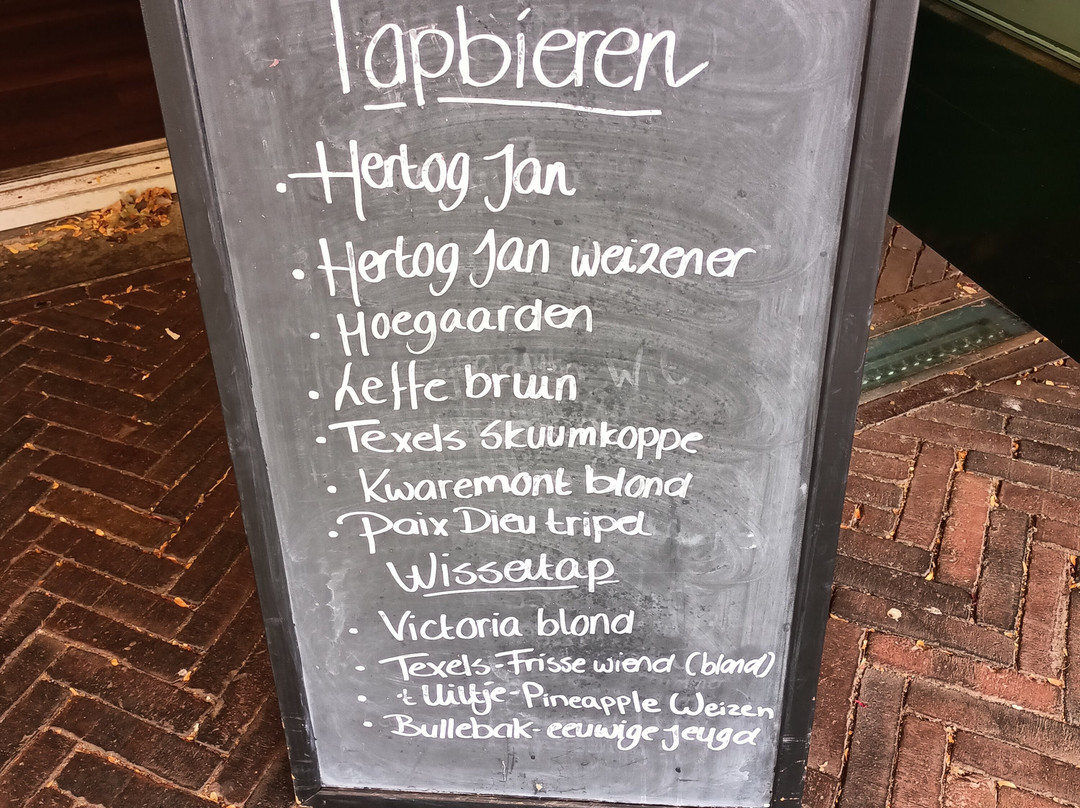 Tapbieren
• Hertog Jan
• Hertog Jan weizener
• Hoegaarden
• Leffe bruin
• Texels Skuumkoppe
• Kwaremont blond
• Paix Dieu tripel
Wisseltap
• Victoria blond
• Texels-Frisse wiend (blond)
• 't Uiltje-Pineapple Weizen
• Bullebak-eeuwige jeugd